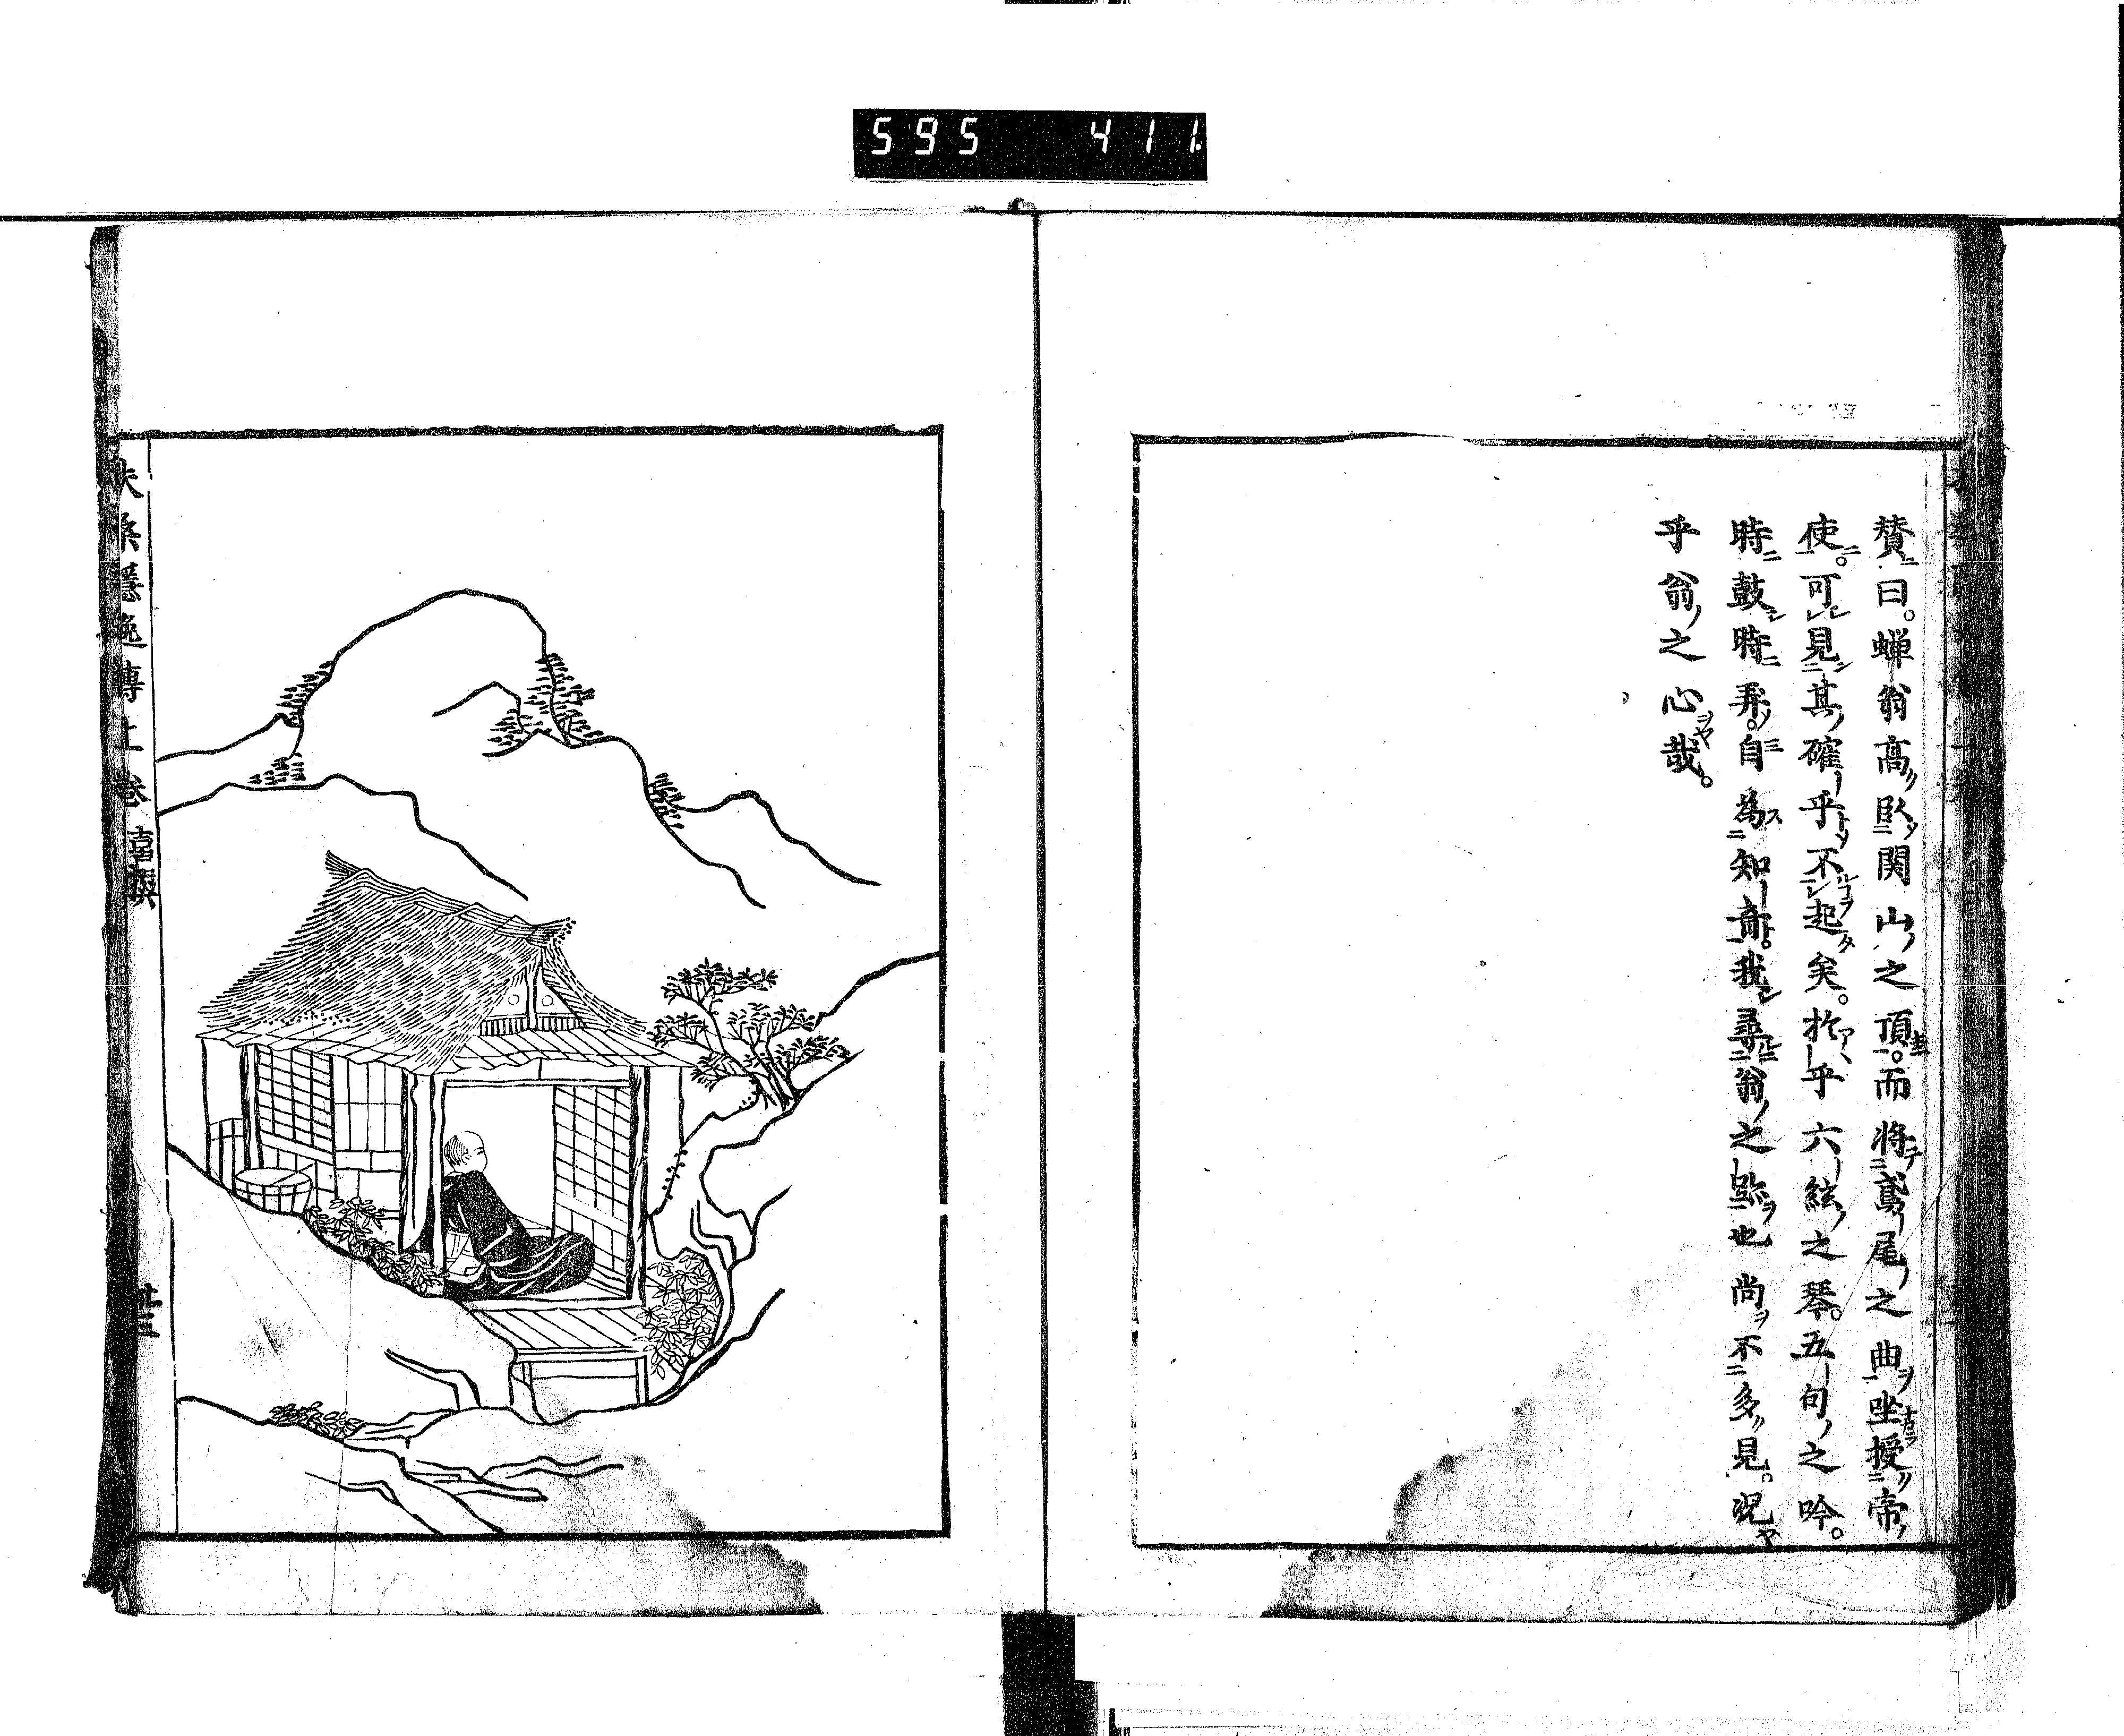 595 411
賛曰。蝉翁高臥関山之頂。而將鳶尾之曲坐授帝
使。可見其確乎不起矣。於乎六絃之琴。五句之吟。
時鼓時弄。自為知音。我尋翁之跡也尚不多見。況
乎翁之心哉。
扶桑隱逸傳上卷 喜撰 廿三